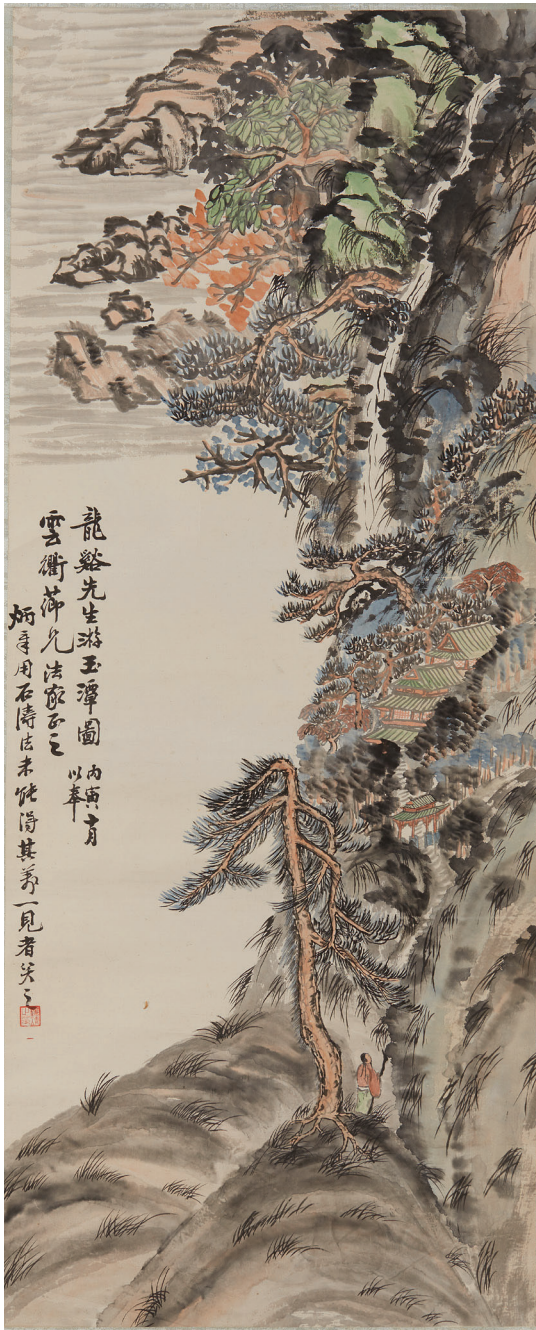 龍谿先生游玉潭圖 丙寅十月
以奉
雲衢茀兄法家正之
炳章用石濤法未能得其萬一見者笑之